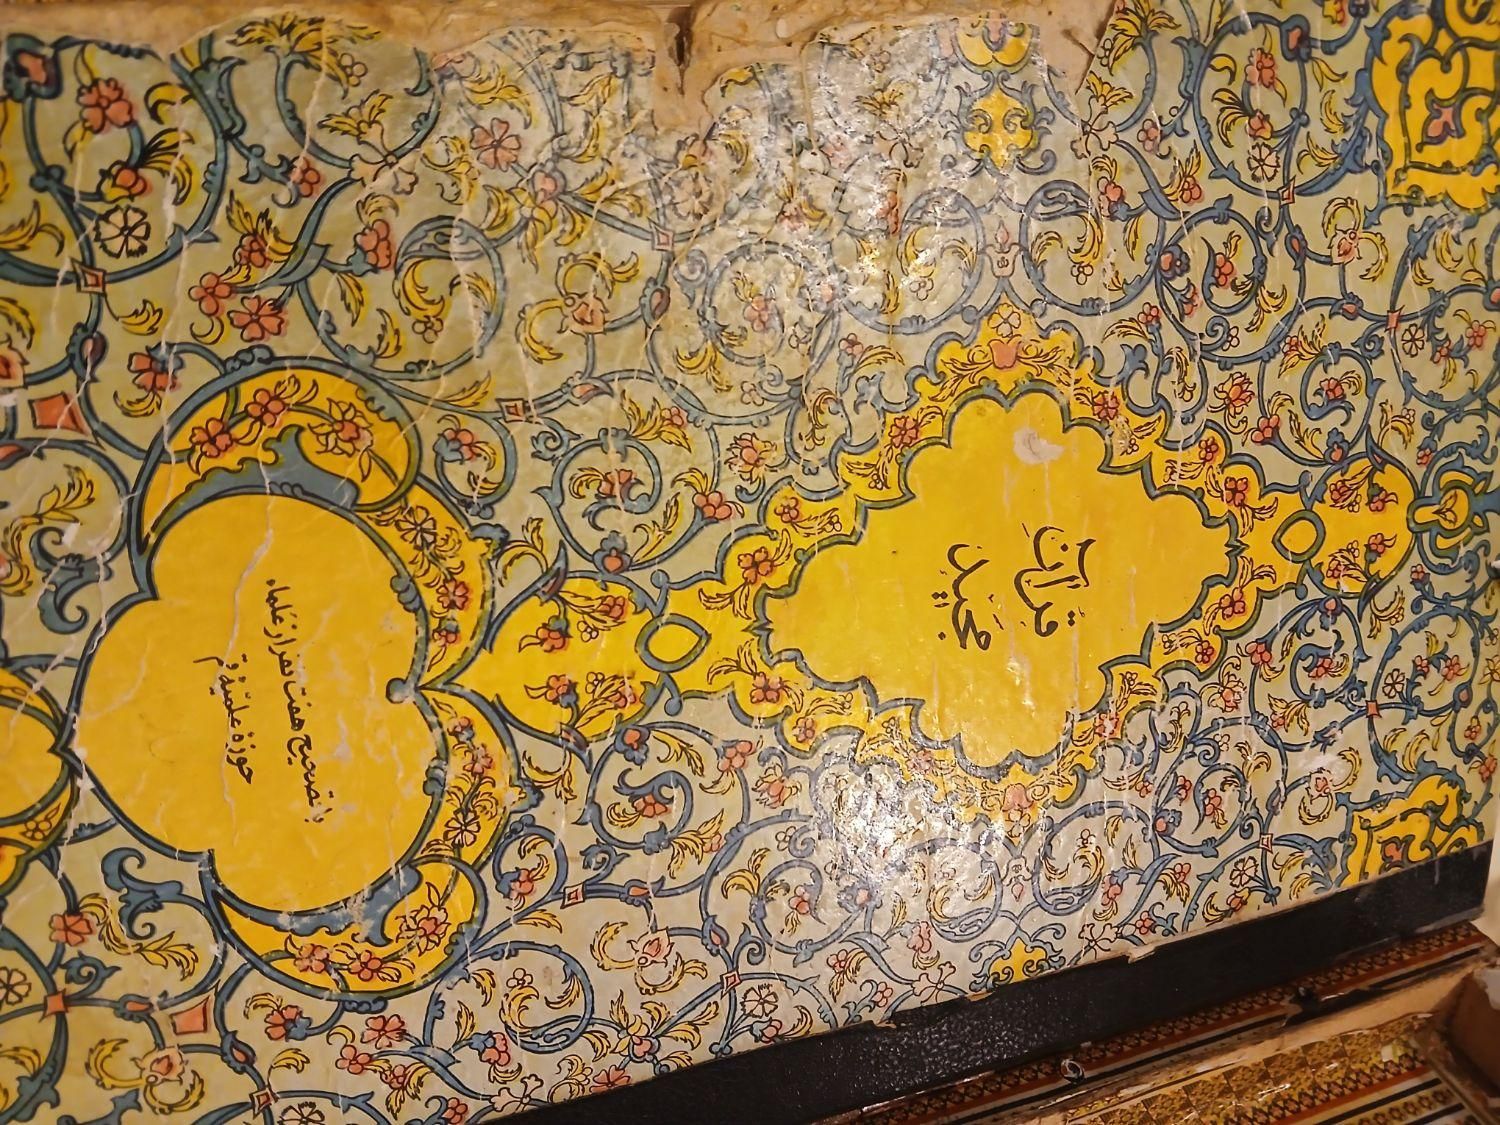 قرآن
مجید
با تصحیح هفت نفر از علماء
حوزهٔ علمیهٔ قم